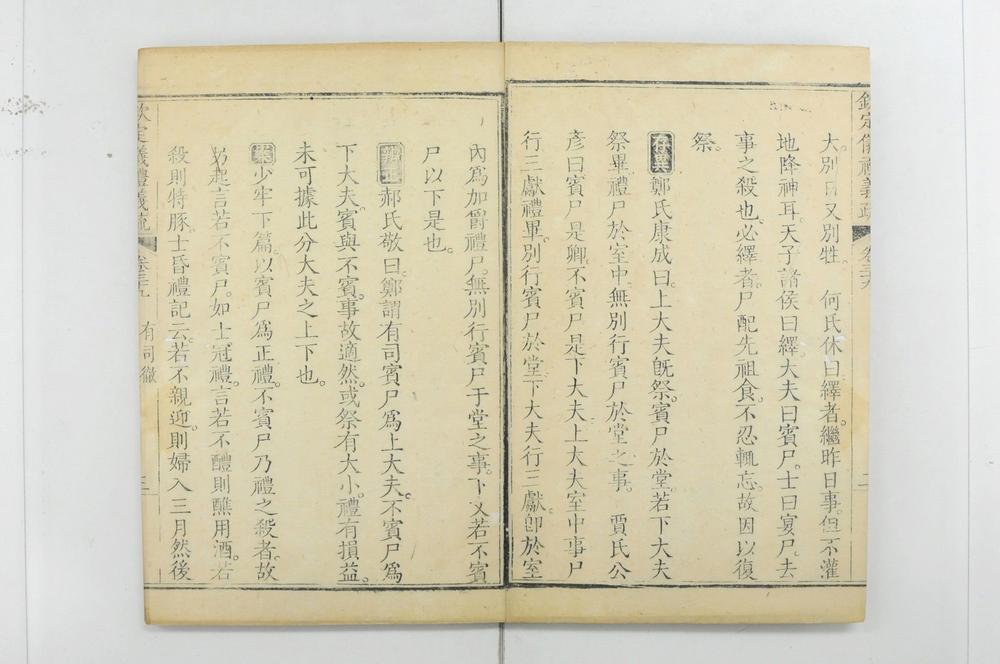 欽定儀禮義疏 卷三十九 二
大別日又別牲。 何氏休曰繹者。繼昨日事。但不灌
地降神耳。天子諸侯曰繹。大夫曰賓尸。士曰宴尸。去
事之殺也。必繹者。尸配先祖食。不忍輒忘。故因以復
祭。
存異鄭氏康成曰上大夫旣祭。賓尸於堂。若下大夫
祭畢。禮尸於室中。無別行賓尸於堂之事。 賈氏公
彥曰賓尸是卿。不賓尸是下大夫。上大夫室中事尸
行三獻禮畢。別行賓尸於堂。下大夫行三獻。卽於室
內爲加爵禮尸。無別行賓尸于堂之事。下文若不賓
尸以下是也。
辨正郝氏敬曰。鄭謂有司賓尸爲上大夫。不賓尸爲
下大夫。賓與不賓。事故適然。或祭有大小。禮有損益。
未可據此分大夫之上下也。
案少牢下篇。以賓尸爲正禮。不賓尸乃禮之殺者。故
另起言若不賓尸。如士冠禮。言若不醴則醮用酒。若
殺則特豚。士昏禮記云。若不親迎。則婦入三月然後
欽定儀禮義疏 卷三十九 有司徹 三